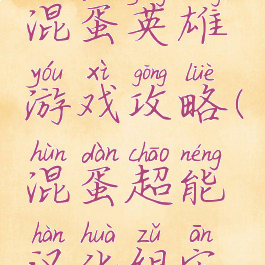 混蛋英雄
yóu xì gōng lüè
游戏攻略(
hùn dàn chāo néng
混蛋超能
hàn huà zǔ ān